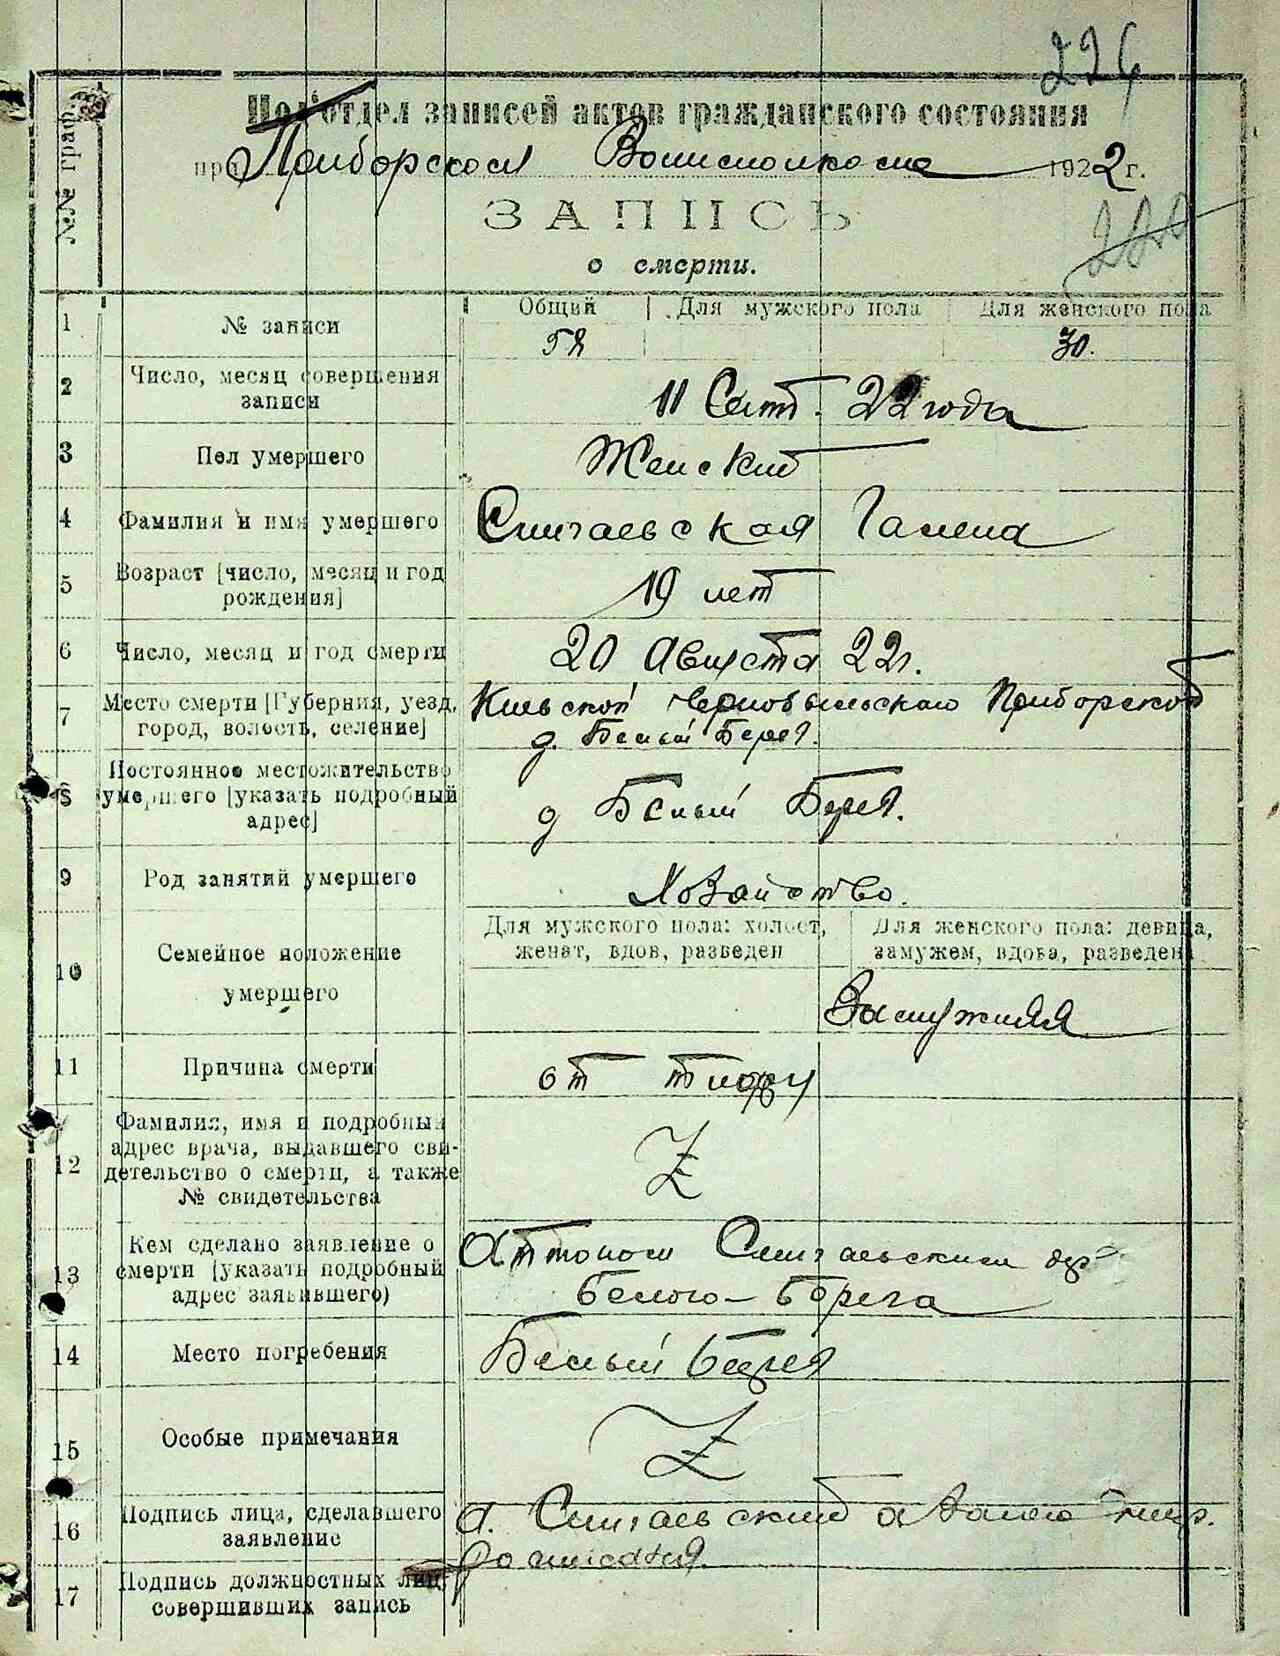 224
Подотдел записей актов гражданского состояния
при Приборском Волисполкоме 1922 г.
ЗАПИСЬ
о смерти.
№№ граф
1 № записи Общий Для мужского пола Для женского пола
58 30.
2 Число, месяц совершения
записи
11 Сент. 22 года
3 Пол умершего Женский
4 Фамилия и имя умершего Снигаевская Галена
5 Возраст [число, месяц и год
рождения]
19 лет
6 Число, месяц и год смерти 20 Августа 22 г.
7 Место смерти [Губерния, уезд,
город, волость, селение]
Киевской Чернобыльскаго Приборской
д. Белый Берег.
8 Постоянное местожительство
умершего [указать подробный
адрес]
д Белый Берег.
9 Род занятий умершего Хозайство.
10 Семейное положение
умершего
Для мужского пола: холост,
женат, вдов, разведен
Для женского пола: девица,
замужем, вдова, разведена
Замужняя
11 Причина смерти от тифу
12 Фамилия, имя и подробный
адрес врача, выдавшего сви-
детельство о смерти, а также
№ свидетельства
Z
13 Кем сделано заявление о
смерти [указать подробный
адрес заявившего)
Антоном Снигаевским дер
Белого-Берега
14 Место погребения Белый берег
15 Особые примечания Z
16 Подпись лица, сделавшего
заявление
А. Снигаевский а за него
росписался.
17 Подпись должностных лиц
совершивших запись